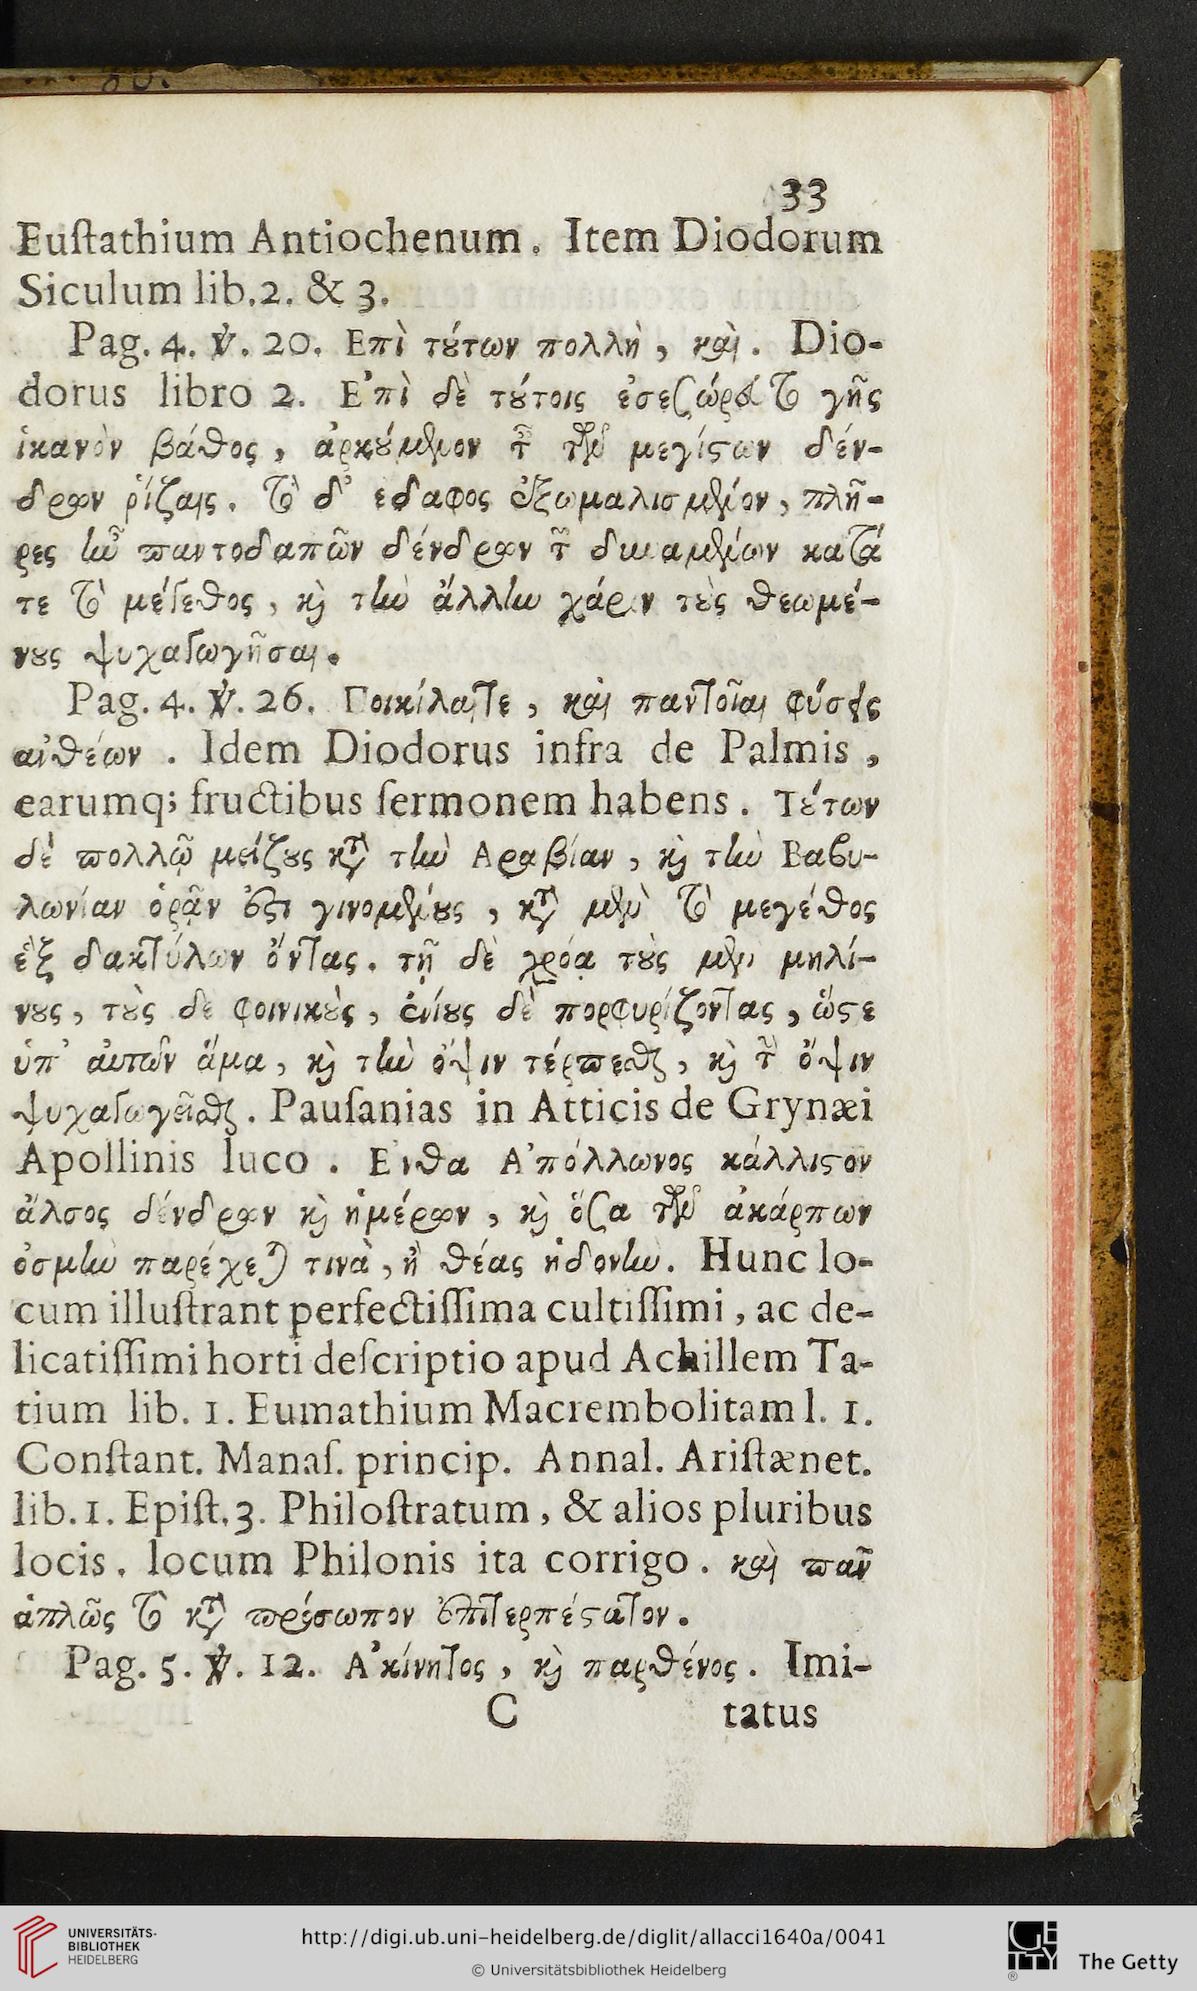 33
Euſtathium Antiochenum. Item Diodorum
Siculum lib. 2. & 3.
Pag. 4. ℣. 20. Επὶ τύτων πολλὴ, καὶ. Dio-
dorus libro 2. Ε᾿πὶ δὲ τούτοις ἐσεσώρευτο γῆς
ἱκανὸν βάθος, ἀρκούμενον ταῖς τῶν μεγίστων δέν-
δρων ῥίζαις. τὸ δ᾽ εδαφος ἐξωμαλισμένον, πλῆ-
ρες ἦν παντοδαπῶν δένδρων τῶν δυναμένων κατά
τε τὸ μέγεθος, καὶ τὴν ἄλλην χάριν τοὺς θεωμέ-
νους ψυχαγωγῆσαι.
Pag. 4. ℣. 26. Ποικίλαι τε, καὶ παντοῖαι φύσεις
ἀνθέων. Idem Diodorus infra de Palmis,
earumq; fructibus ſermonem habens. Τέτων
δὲ πολλῷ μείζους κατὰ τὴν Αραβίαν, καὶ τὴν Βαβυ-
λωνίαν ὁρᾶν ἔστι γινομένους, κατὰ μὲν τὸ μεγέθος
ἑξ δακτύλων ὄντας. τῇ δὲ χρόᾳ τοὺς μὲν μηλί-
νους, τοὺς δε φοινικοὺς, ἐνίους δὲ πορφυρίζοντας, ὥστε
ὑπ᾽ αὐτῶν ἅμα, καὶ τὴν ὄψιν τέρπεσθαι, καὶ τὴν ὄψιν
ψυχαγωγεῖσθαι. Pauſanias in Atticis de Grynæi
Apollinis luco. Ενθα Α᾿πόλλωνος κάλλιστον
ἄλσος δένδρων καὶ ἡμέρων, καὶ ὅσα τῶν ἀκάρπων
ὀσμὴν παρέχεται τινὰ, ἢ θέας ἡδονὴν. Hunc lo-
cum illuſtrant perfectiſſima cultiſſimi, ac de-
licatiſſimi horti deſcriptio apud Achillem Ta-
tium lib. 1. Eumathium Macrembolitam l. 1.
Conſtant. Manaſ. princip. Annal. Ariſtænet.
lib. 1. Epiſt. 3. Philoſtratum, & alios pluribus
locis. locum Philonis ita corrigo. καὶ πᾶν
ἁπλῶς τὸ κατὰ πρόσωπον ἐπιτερπέστατον.
Pag. 5. ℣. 12. Α᾿κίνητος, καὶ παρθένος. Imi-
C tatus
UNIVERSITÄTS-
BIBLIOTHEK
HEIDELBERG
http://digi.ub.uni-heidelberg.de/diglit/allacci1640a/0041
© Universitätsbibliothek Heidelberg
The Getty